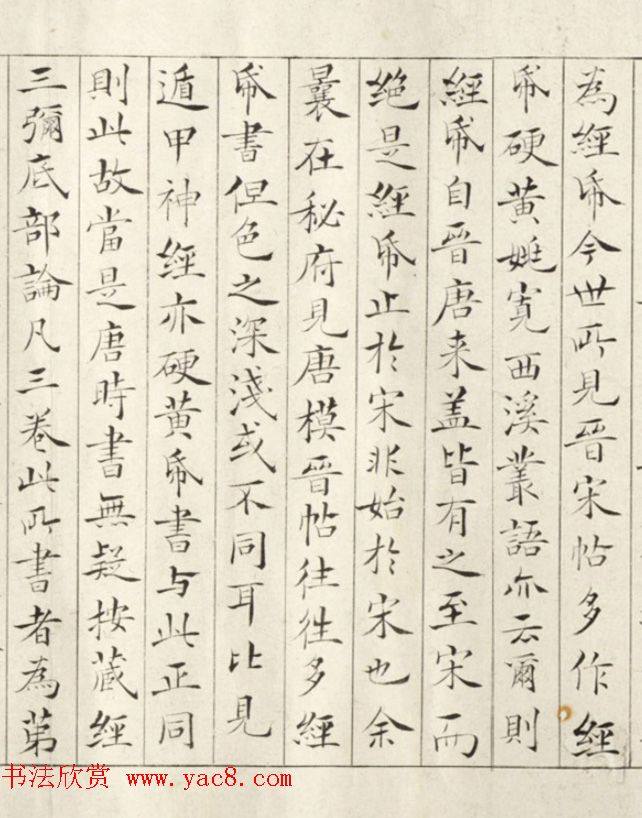 為經帋今世所見晉宋帖多作經
帋硬黃姚寬西溪叢語亦云爾則
經帋自晉唐来盖皆有之至宋而
绝是經帋止於宋非始於宋也余
曩在秘府見唐模晉帖往往多經
帋書但色之深淺或不同耳比見
遁甲神經亦硬黃帋書与此正同
則此故當是唐時書無疑按藏經
三彌底部論凡三卷此所書者為第
书法欣赏 www.yac8.com